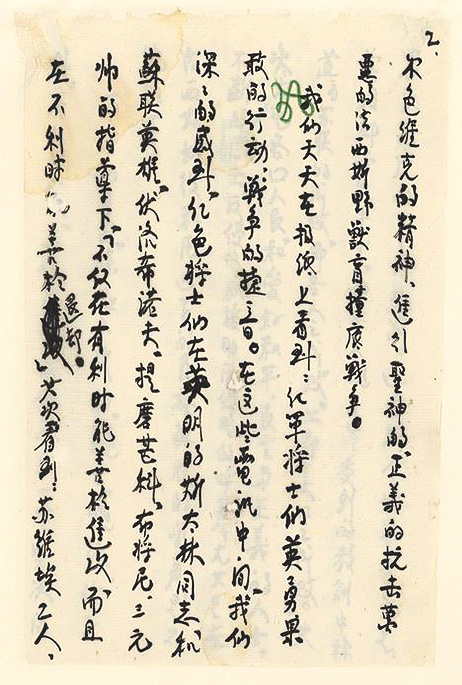 2.
尔色維克的精神、進引聖神的、正義的抗击萬
惡的法西斯野獸盲撞底戰争。
我们天天在报纸上看到：红軍将士们英勇果
敢的行动；戰争的捷音。在这些電訊中间，我们
深深的感到，红色将士们在英明的斯大林同志和
蘇联英雄"伏洛希洛夫，提摩芒科，布将尼三元
帅的指導下，不仅在有利时能善於進攻，而且
在不利时 善於退却。其次看到：苏維埃工人、